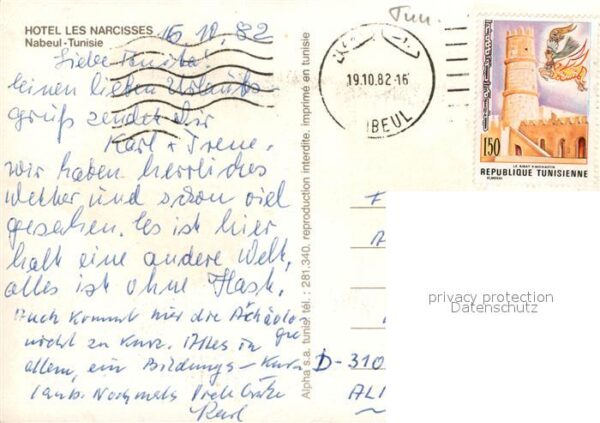 HOTEL LES NARCISSES
Nabeul-Tunisie
16.10.82
Liebe
einen lieben Urlaubs-
gruß sendet Dir
Karl + Irene.
wir haben herrliches
Wetter und schon viel
gesehen. Es ist hier
halt eine andere Welt,
alles ist ohne Hast.
Auch kommt hier die Archäolo
gie
nicht zu kurz. Alles in
allem, ein Bildungs-Kurz
laub. Nochmals viele Grüße
Karl
Alpha s.a. tunis tél.: 281.340, reproduction interdite, imprimé en tunisie
Tun.
19.10.82-16
NABEUL
150
LE RIBAT D'MONASTIR
REPUBLIQUE TUNISIENNE
D-310
privacy protection
Datenschutz